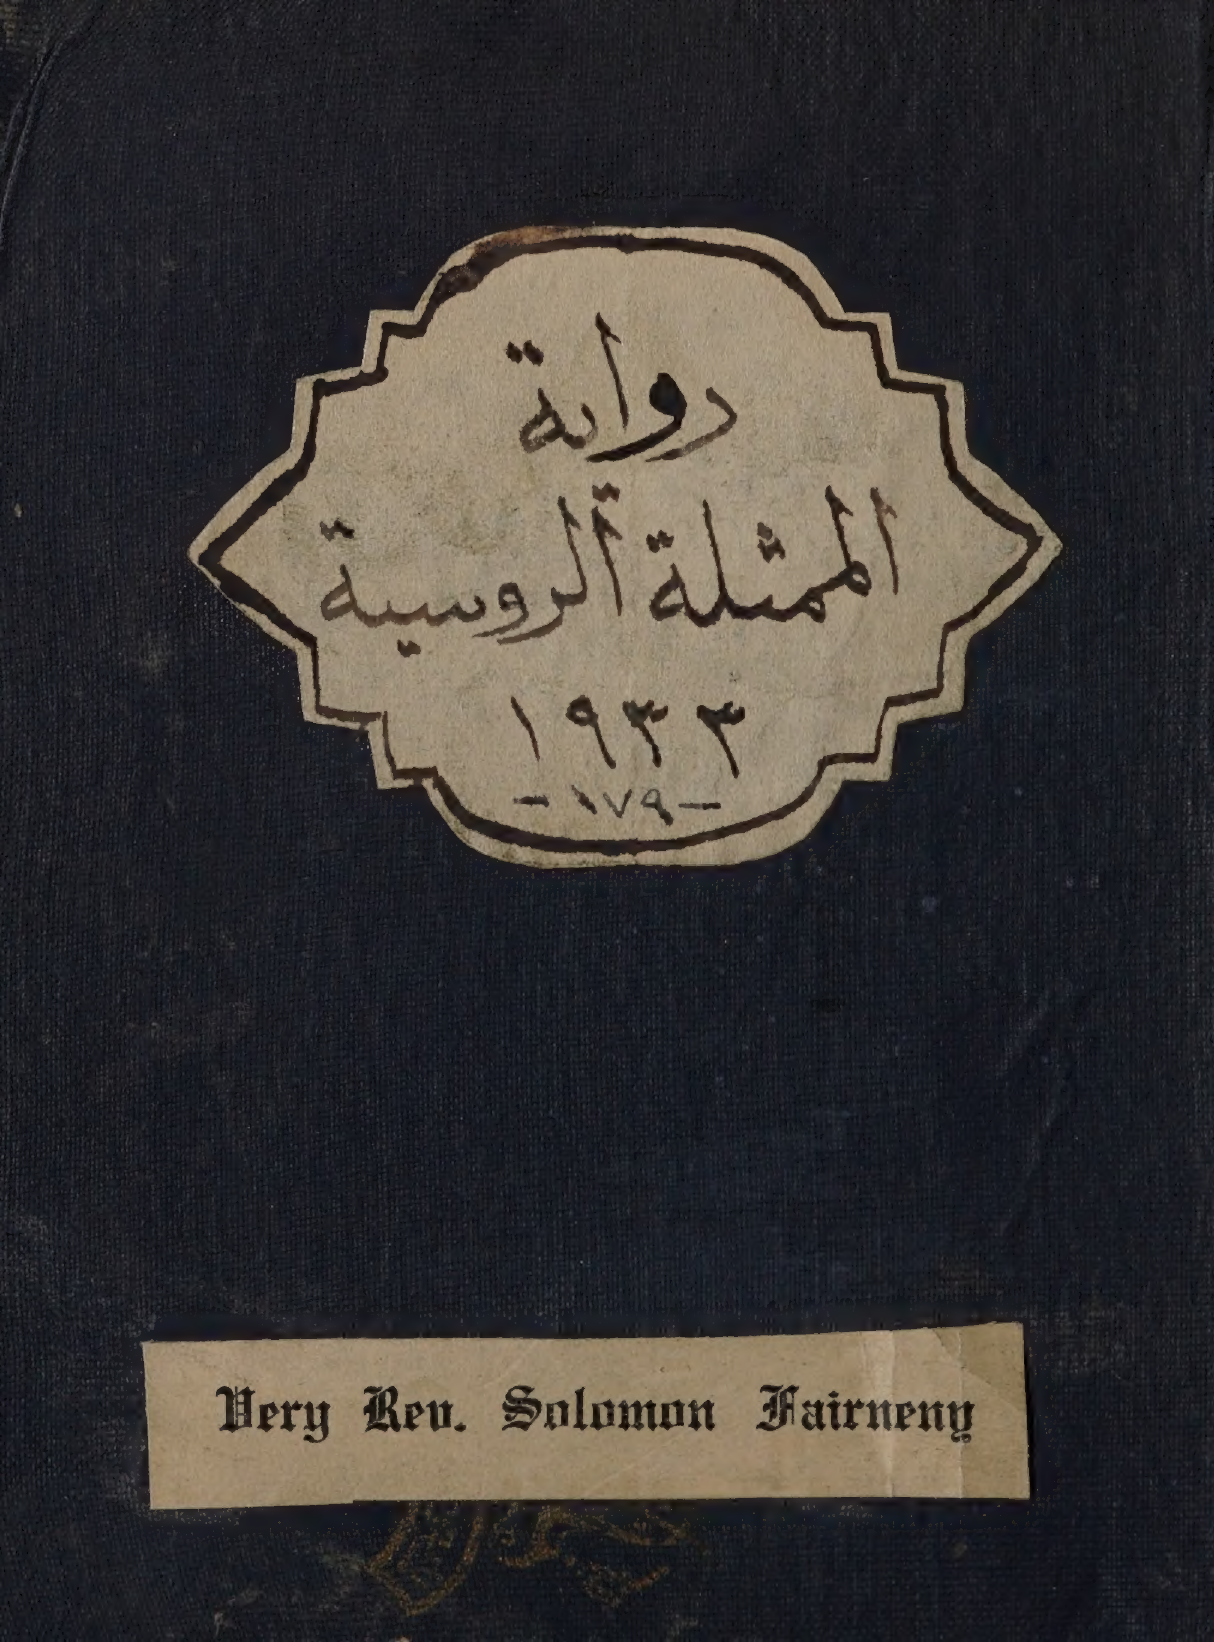 رواية
الممثلة ألروسية
١٩٣٣
-١٧٩-
Very Rev. Solomon Fairneny